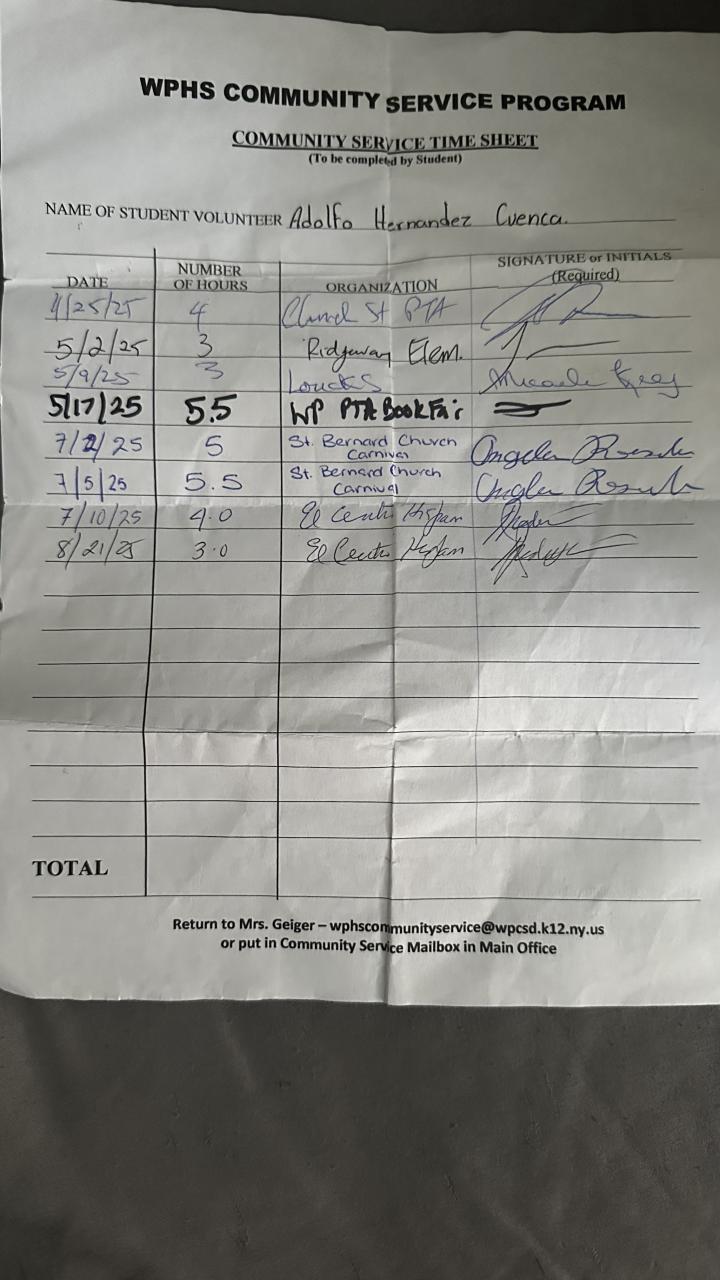 WPHS COMMUNITY SERVICE PROGRAM
COMMUNITY SERVICE TIME SHEET
(To be completed by Student)
NAME OF STUDENT VOLUNTEER Adolfo Hernandez Cuenca.
DATE NUMBER OF HOURS ORGANIZATION SIGNATURE or INITIALS (Required)
4/25/25 4 Church St PTA
5/2/25 3 Ridgeway Elem.
5/9/25 3 Loucks
5/17/25 5.5 WP PTA Book Fair
7/2/25 5 St. Bernard Church Carnival Angela
7/5/25 5.5 St. Bernard Church Carnival Angela
7/10/25 4.0 El Centro Hispano
8/21/25 3.0 El Centro Hispano
TOTAL
Return to Mrs. Geiger – wphscommunityservice@wpcsd.k12.ny.us
or put in Community Service Mailbox in Main Office